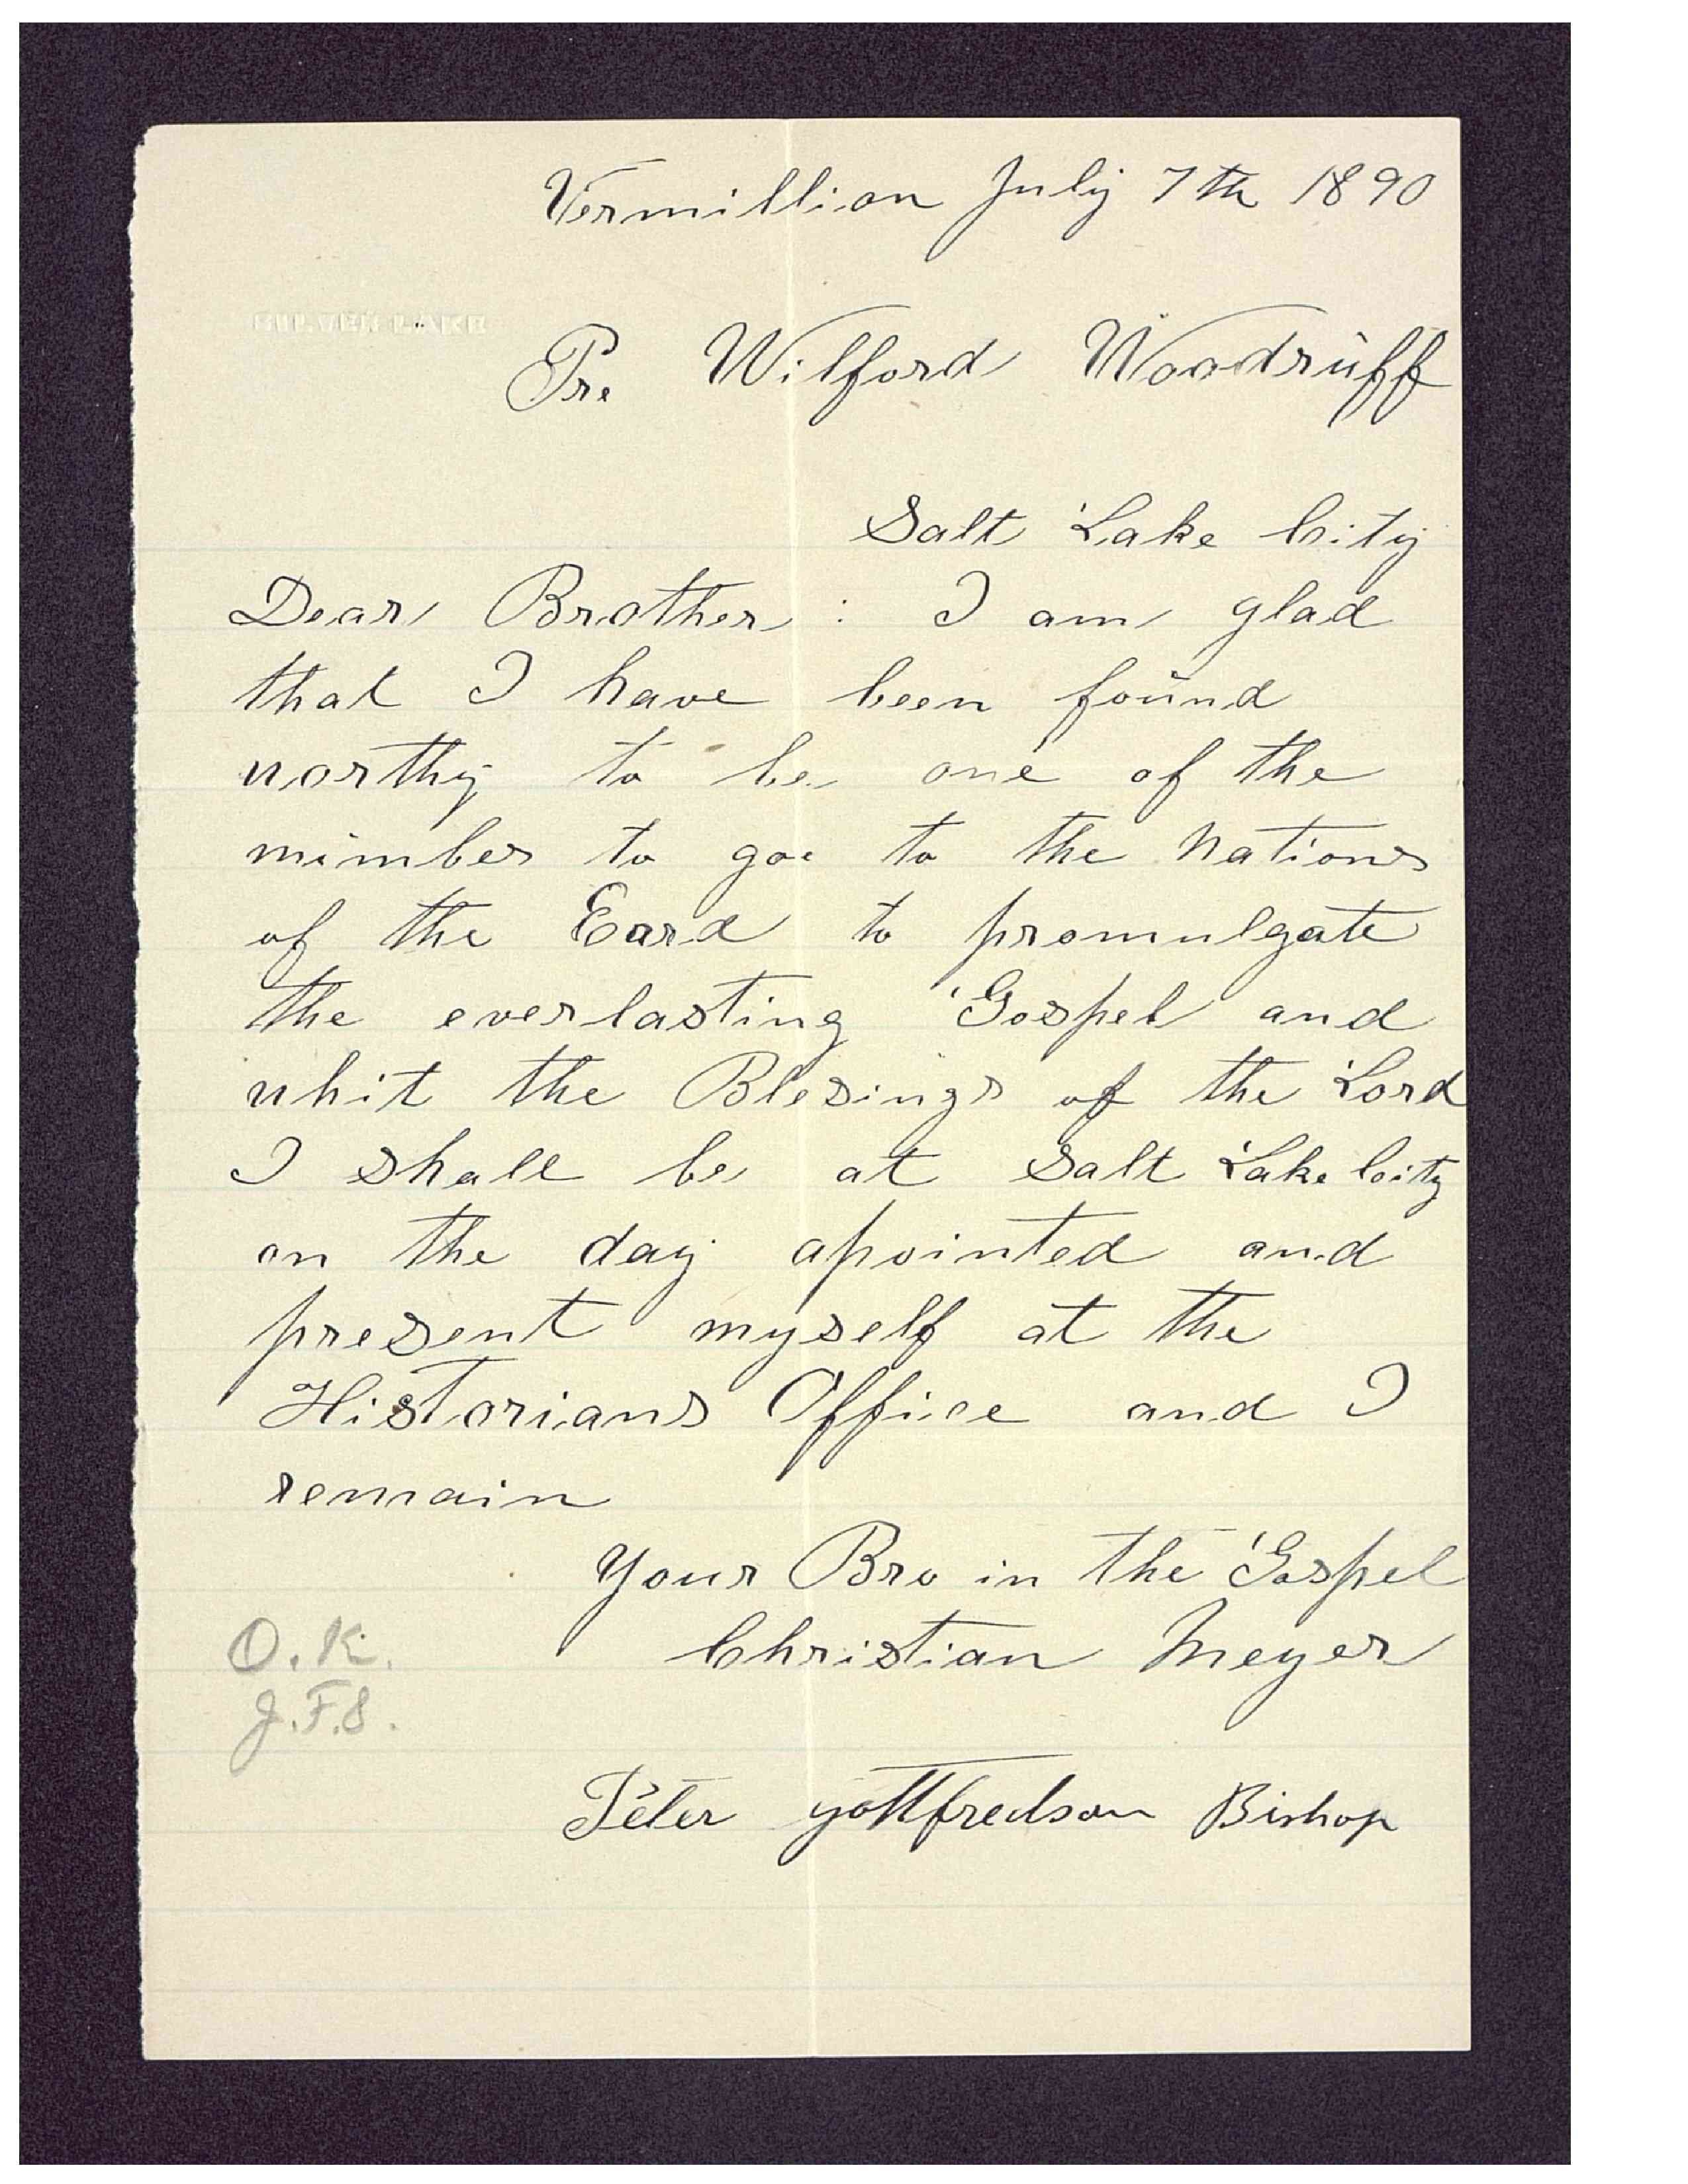 Vermillion July 7th 1890
SILVER LAKE
Pre Wilford Woodruff
Salt Lake City
Dear Brother : I am glad
that I have been found
worthy to be one of the
mimber to goe to the Nations
of the Eard to promulgate
the everlasting Gospel and
whit the Blesings of the Lord
I shall be at Salt Lake City
on the day apointed and
present myself at the
Historians Office and I
remain
Your Bro in the Gospel
Christian Meyer
O.K.
J.F.S.
Peter Gottfredson Bishop